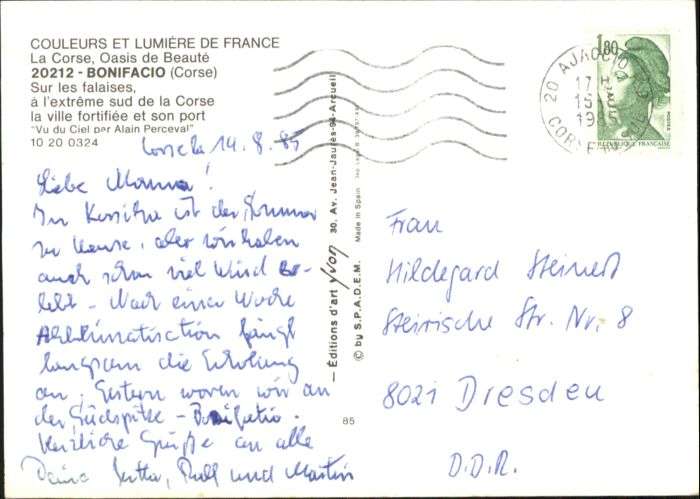 COULEURS ET LUMIÈRE DE FRANCE
La Corse, Oasis de Beauté
20212 - BONIFACIO (Corse)
Sur les falaises,
à l'extrême sud de la Corse
la ville fortifiée et son port
"Vu du Ciel par Alain Perceval"
10 20 0324
Corse la 14.8.85
Liebe Mamma!
In Korsika ist der Sommer
zu Hause, aber wir haben
auch schon viel Wind er-
lebt - Nach einer Woche
Akklimatisation fängt
langsam die Erholung
an. Gestern waren wir an
der Südspitze - Bonifatio.
Herzliche Grüße an alle
Deine Jutta, Rolf und Martin
— Éditions d'art yvon 30, Av. Jean-Jaurès-94-Arcueil
© by S.P.A.D.E.M. Made in Spain
85
1,80
REPUBLIQUE FRANÇAISE
20 AJACCIO
17 H
16
19
CORSE
Frau
Hildegard Steinert
Steirische Str. Nr. 8
8021 Dresden
D.D.R.